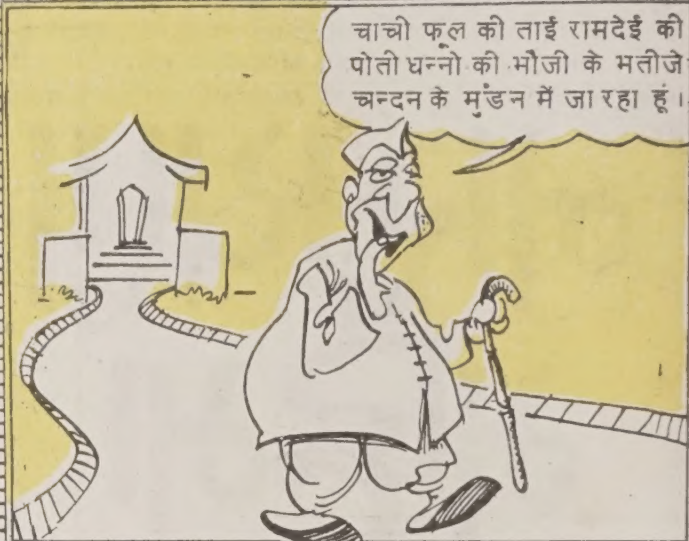 चाची फूल की ताई रामदेई की
पोती घन्नो की भौजी के भतीजे
चन्दन के मुंडन में जा रहा हूं ।